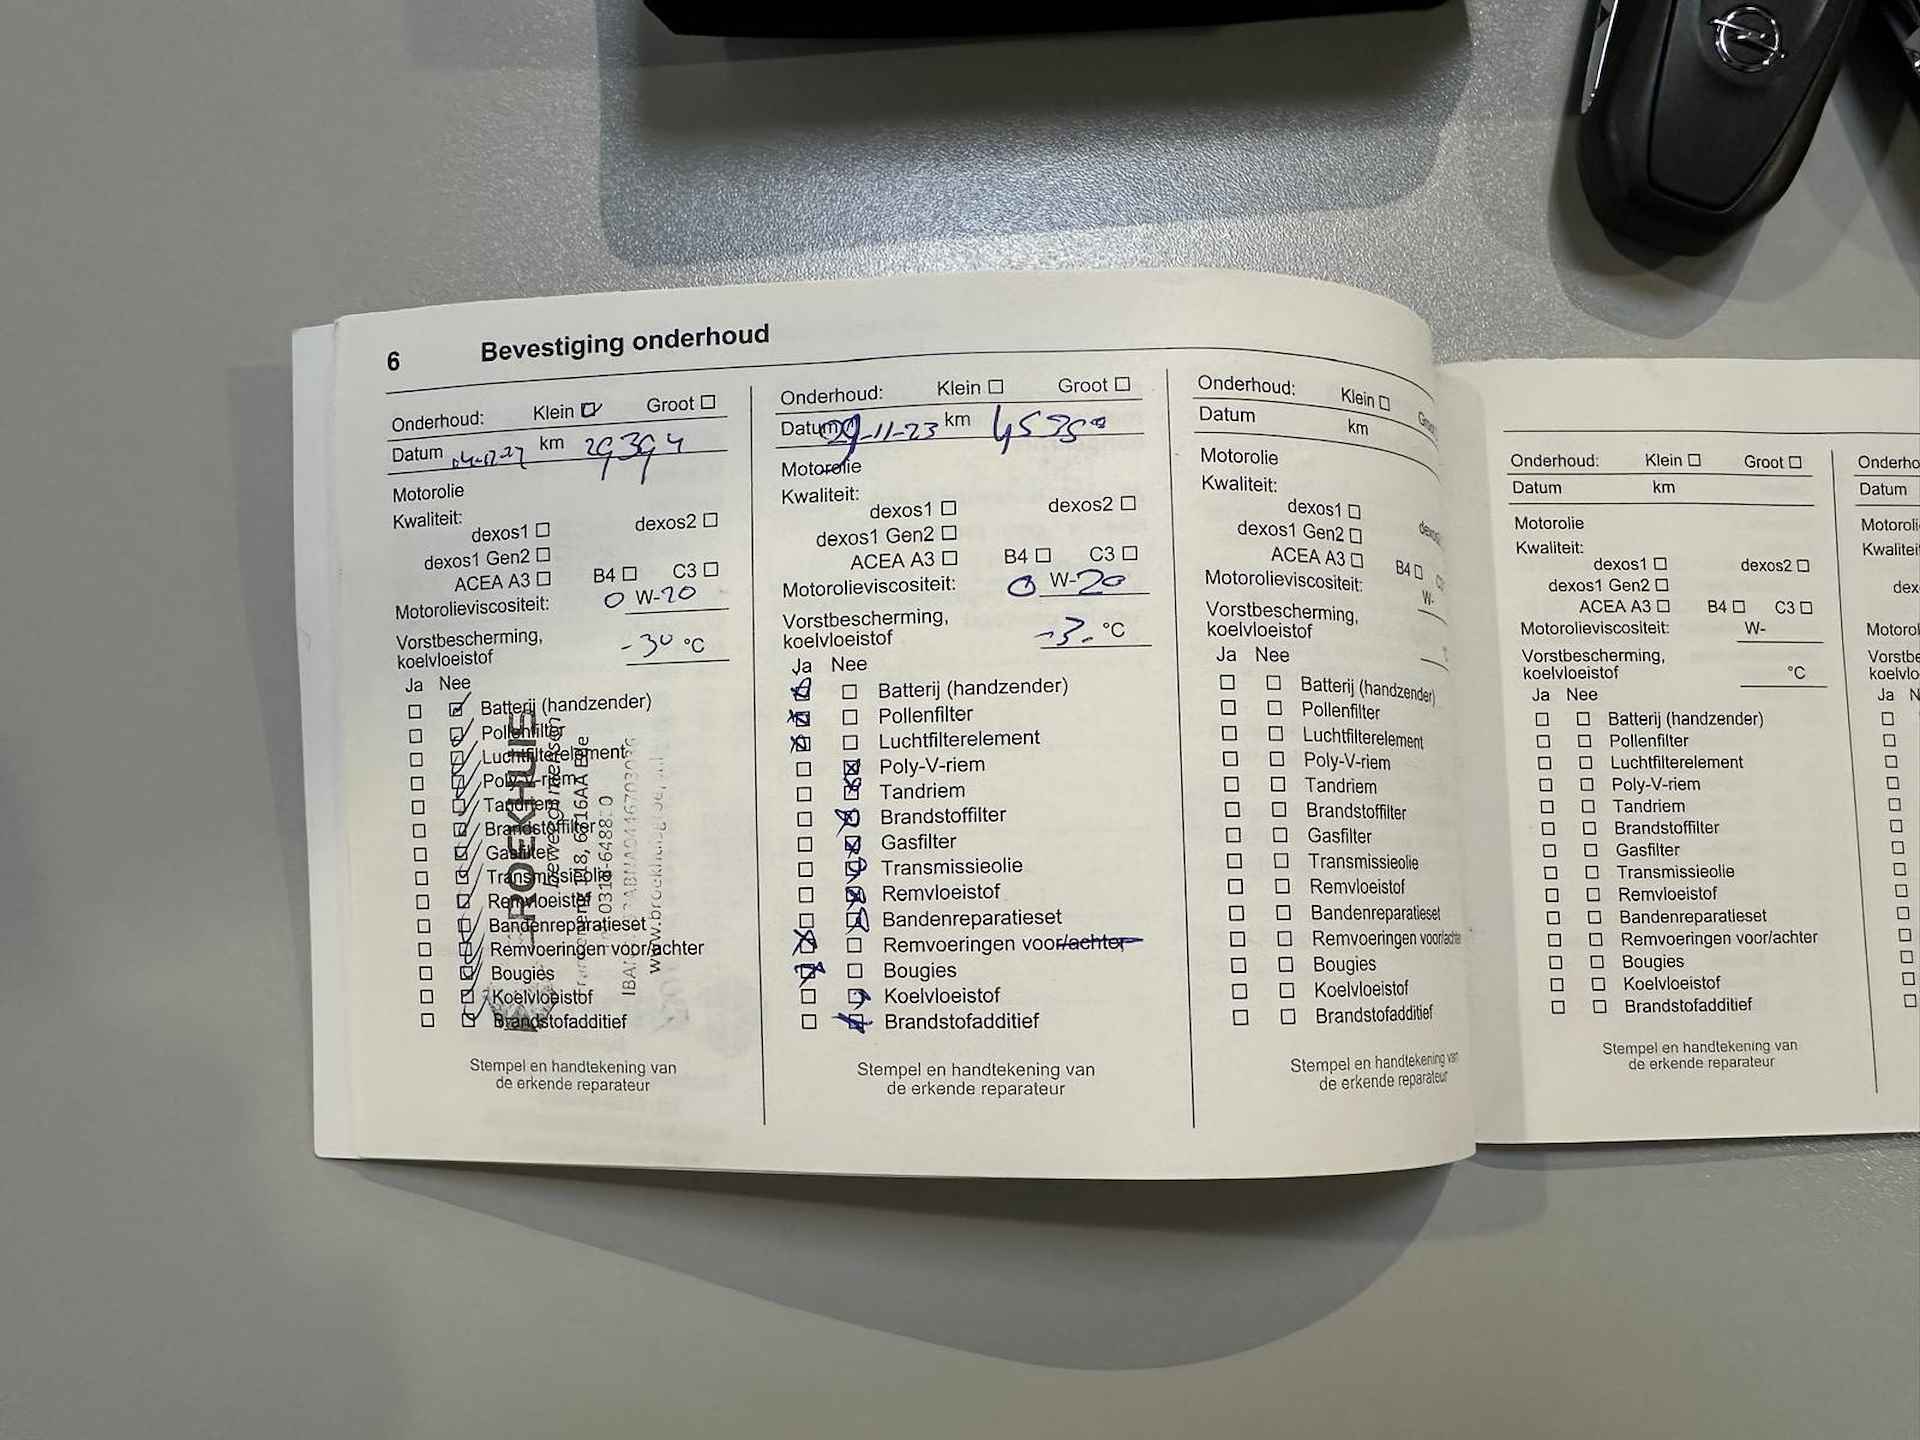 6 Bevestiging onderhoud
Onderhoud: Klein Groot
Datum km 29394
Motorolie
Kwaliteit:
dexos1 dexos2
dexos1 Gen2
ACEA A3 B4 C3
Motorolieviscositeit: 0 W-20
Vorstbescherming,
koelvloeistof -30 °C
Ja Nee
Batterij (handzender)
Pollenfilter
Luchtfilterelement
Poly-V-riem
Tandriem
Brandstoffilter
Gasfilter
Transmissieolie
Remvloeistof
Bandenreparatieset
Remvoeringen voor/achter
Bougies
Koelvloeistof
Brandstofadditief
Stempel en handtekening van
de erkende reparateur
Onderhoud: Klein Groot
Datum 29-11-23 km
Motorolie
Kwaliteit:
dexos1 dexos2
dexos1 Gen2
ACEA A3 B4 C3
Motorolieviscositeit: 0 W-20
Vorstbescherming,
koelvloeistof °C
Ja Nee
Batterij (handzender)
Pollenfilter
Luchtfilterelement
Poly-V-riem
Tandriem
Brandstoffilter
Gasfilter
Transmissieolie
Remvloeistof
Bandenreparatieset
Remvoeringen voor/achter
Bougies
Koelvloeistof
Brandstofadditief
Stempel en handtekening van
de erkende reparateur
Onderhoud: Klein
Datum km
Motorolie
Kwaliteit:
dexos1
dexos1 Gen2
ACEA A3 B4
Motorolieviscositeit: W-
Vorstbescherming,
koelvloeistof
Ja Nee
Batterij (handzender)
Pollenfilter
Luchtfilterelement
Poly-V-riem
Tandriem
Brandstoffilter
Gasfilter
Transmissieolie
Remvloeistof
Bandenreparatieset
Remvoeringen voor/achter
Bougies
Koelvloeistof
Brandstofadditief
Stempel en handtekening van
de erkende reparateur
Onderhoud: Klein Groot
Datum km
Motorolie
Kwaliteit:
dexos1 dexos2
dexos1 Gen2
ACEA A3 B4 C3
Motorolieviscositeit: W-
Vorstbescherming,
koelvloeistof °C
Ja Nee
Batterij (handzender)
Pollenfilter
Luchtfilterelement
Poly-V-riem
Tandriem
Brandstoffilter
Gasfilter
Transmissieolie
Remvloeistof
Bandenreparatieset
Remvoeringen voor/achter
Bougies
Koelvloeistof
Brandstofadditief
Stempel en handtekening van
de erkende reparateur
Datum
Ja